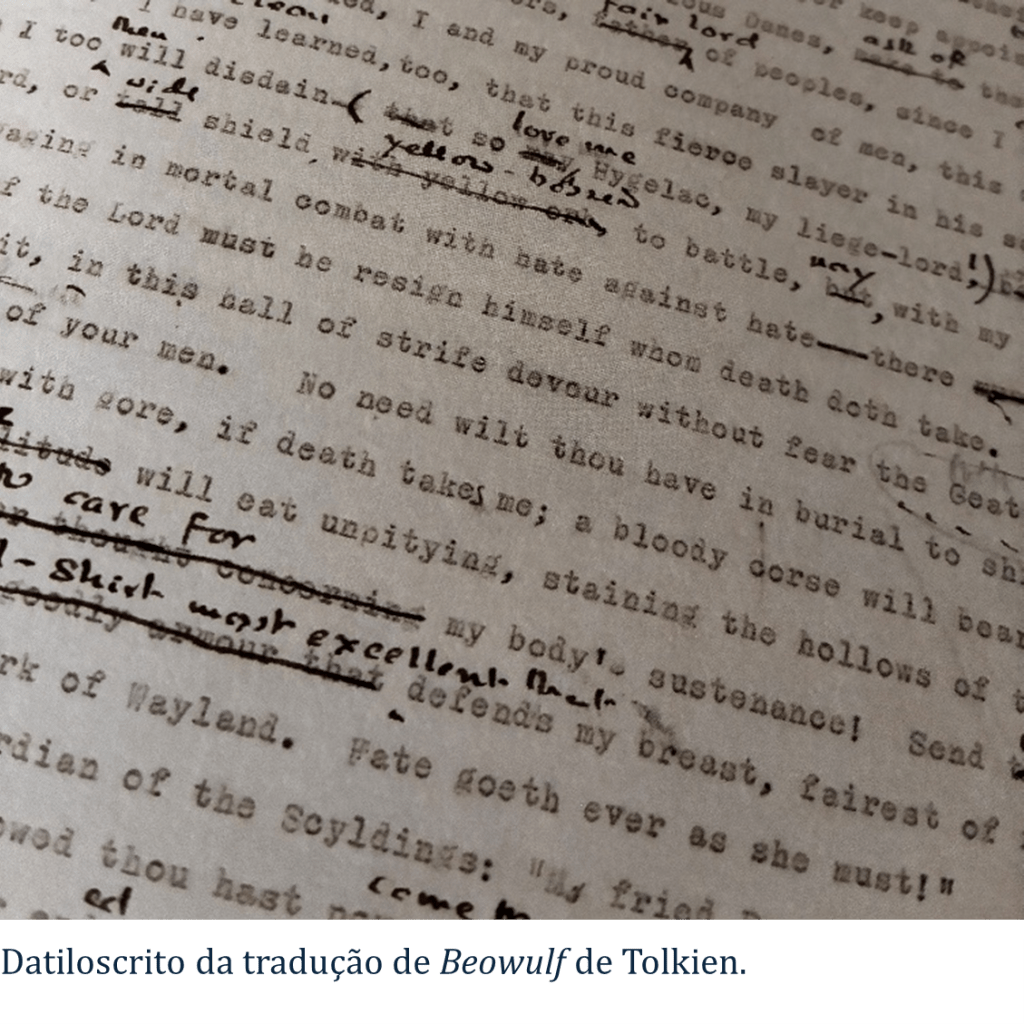 keep appoin
Danes,
ask of
fair lord
father of peoples, since I
I and my proud company of men, this
I have learned, too, that this fierce slayer in his
then
love me
I too will disdain (that so Hygelac, my liege-lord!)
wide
yellow-bossed
nay
or tall shield, with yellow orb, to battle, but, with my
in mortal combat with hate against hate—there
the Lord must he resign himself whom death doth take.
it, in this hall of strife devour without fear the Geat
of your men. No need wilt thou have in burial to sh
with gore, if death takes me; a bloody corse will bear
will eat unpitying, staining the hollows of t
care for
thought concerning my body's sustenance! Send t
-shirt most excellent that
goodly armour that defends my breast, fairest of
rk of Wayland. Fate goeth ever as she must!"
rdian of the Scyldings: "My fried
come
owed thou hast
ed
Datiloscrito da tradução de Beowulf de Tolkien.